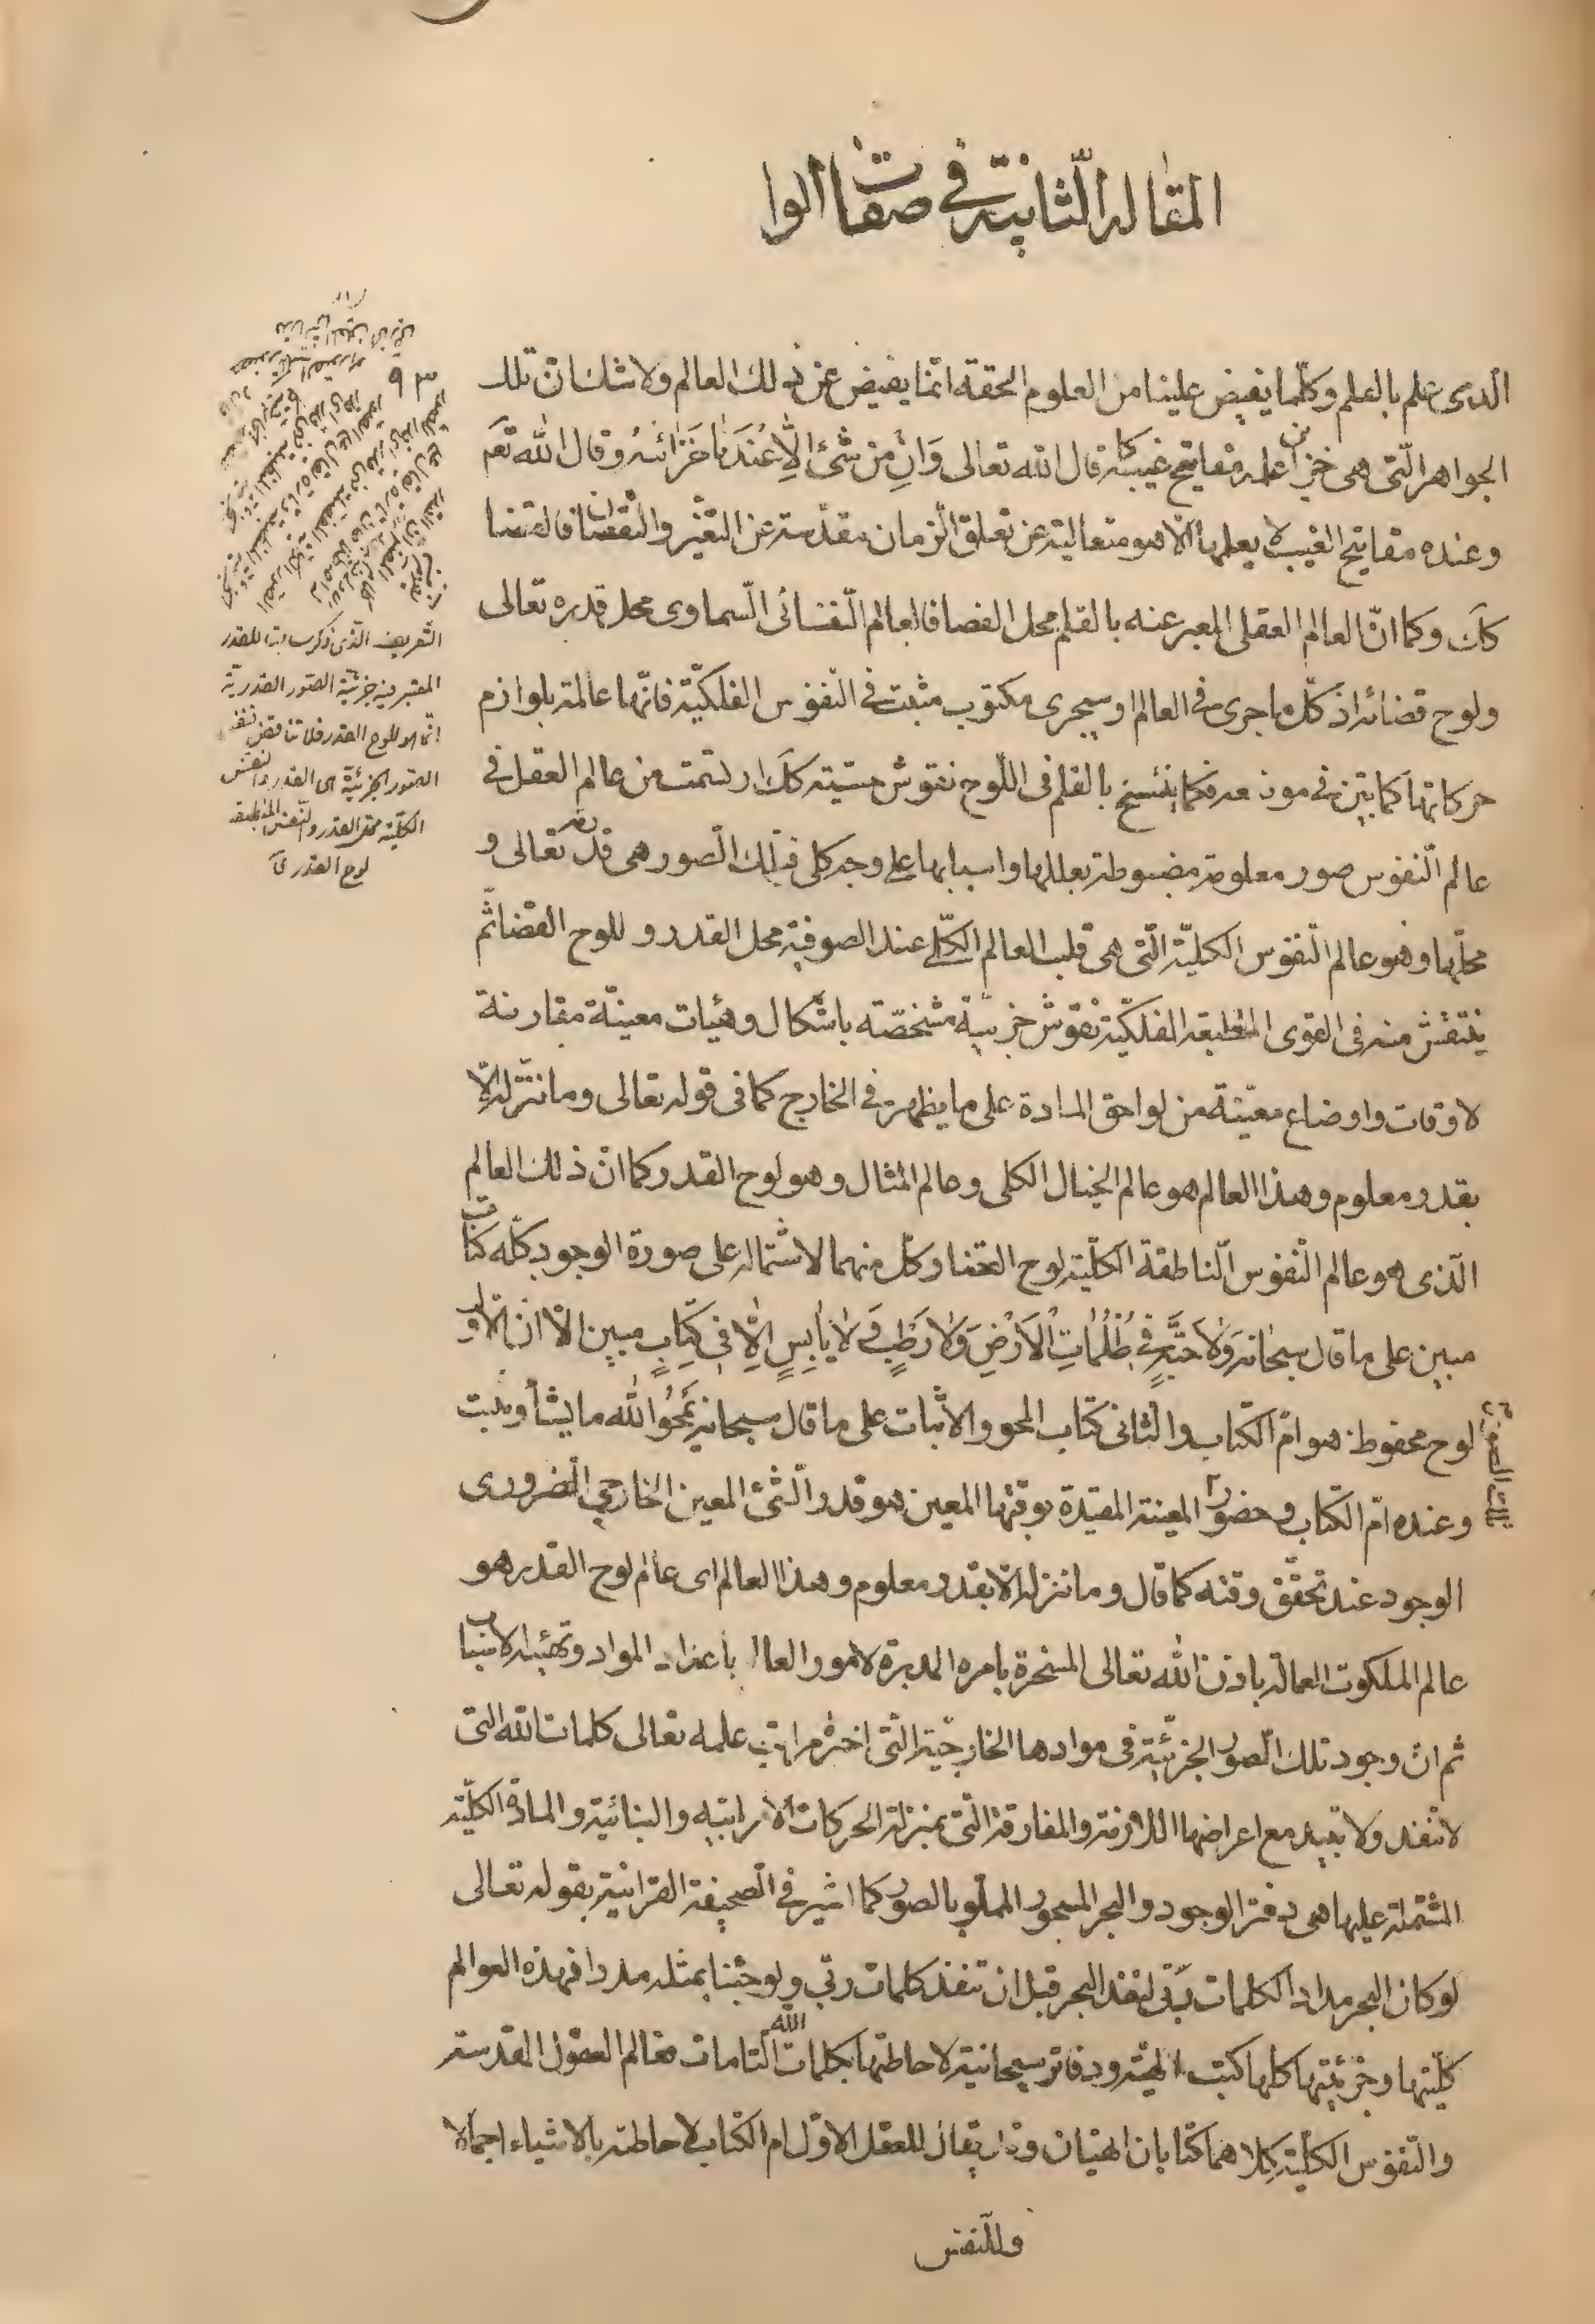 المقاله الثانية في صفات الوا
الذى علم بالعلم وكلّما يفيض علينا من العلوم الحقه انّما يفيض عن ذلك العالم ولا شك انّ تلك
الجواهر الّتى هى خزاين علمه مفاتيح غيبه كما قال الله تعالى وَانِ من شئ الّا عنْدَنا خَزائنه وقال الله تعَ
وعنده مفاتيح الغيب لا يعلمها الّا هو متعالية عن تعلق الزمان مقدّسة عن التغيّر والنقصان فالقضا
كك وكما انّ العالم العقلى المعبر عنه بالقلم محل القضا فالعالم النّفسانى السّماوى محل قدره تعالى
ولوح قضائه اذ كلّ ما جرى فى العالم او سيجرى مكتوب مثبت فى النّفوس الفلكيّة فانّها عالمة بلوازم
حركاتها كما بيّن فى موضعه فكما ينتسخ بالقلم فى اللّوح نقوش حسّية كك ارتسمت من عالم العقل فى
عالم النّفوس صور معلومة مضبوطة بعللها واسبابها على وجه كلى فتلك الصور هى قدره تعالى و
محلّها وهو عالم النّفوس الكليّة الّتى هى قلب العالم الكلّى عند الصوفية محل القدر و للوح القضا ثمّ
ينتقش منه فى القوى المنطبعه الفلكيّة نقوش جزئيّة مشخصّه باشكال وهيئات معينّة مقارنة
لاوقات واوضاع معيّنة من لواحق المادة على ما يظهر فى الخارج كما فى قوله تعالى وما ننزله الّا
بقدر معلوم وهذا العالم هو عالم الخيال الكلى وعالم المثال وهو لوح القدر كما انّ ذلك العالم
الّذى هو عالم النّفوس النّاطقة الكلّية لوح القضا وكلّ منهما لاشتماله على صورة الوجود كلّه كتاب
مبين على ما قال سبحانه وَلا حَبّةٍ فى ظُلُماتِ الاَرْضِ وَلا رَطْبٍ وَ لا يابِسٍ اِلّا فى كِتابٍ مبين الا انّ الاوّل
لوح محفوظ هو امّ الكتاب والثانى كتاب المحو والاثبات على ما قال سبحانه يَمْحُوا الله ما يشأ ويثبت
وعنده امّ الكتاب وحضور المعينة المقيّدة بوقتها المعين هو قدر الشئ المعين الخارجي الضرورى
تلك الصور
الوجود عند تحقّق وقته كما قال وما ننزله الّا بقدر معلوم وهذا العالم اى عالم لوح القدر هو
عالم الملكوت العمالة باذن الله تعالى المسخرة بامره المدبرة لامور العالم باعداد المواد وتهيئة الاسباب
ثم انّ وجود تلك الصور الجزئيّة فى موادها الخارجيّة الّتى اخيرة مراتب علمه تعالى كلمات الله التى
لا تنفد ولا تبيد مع اعراضها اللازمة والمفارقة الّتى بمنزلة الحركات الاعرابيه والبنائية والمادّة الكلّية
المشتملة عليها هى دفتر الوجود والبحر المسجور المملّو بالصور كما اشير فى الصّحيفة القرانيّة بقوله تعالى
لو كان البحر مدادا لكلمات ربّى لنفد البحر قبل ان تنفد كلمات ربّى ولو جئنا بمثله مددا فهذه العوالم
كليّتها وجزئيّتها كلها كتب الهيّة ودفاتر سبحانية لاحاطتها بكلمات الله التّامات فعالم العقول المقدسة
والنّفوس الكليّة كلاهما كتابان الهيّان وقد يقال للعقل الاوّل ام الكتاب لاحاطته بالاشياء اجمالا
وللنّفس
التّعريف الّذى ذكر سابقا للقدر
المعتبر فيه جزئيّة الصّور القدريّة
انّما هو للوح القدر فلا تناقض
الصّور الجزئيّة هى القدر والنفس
الكلّية محل القدر والنّفس المنطبعة
لوح القدر